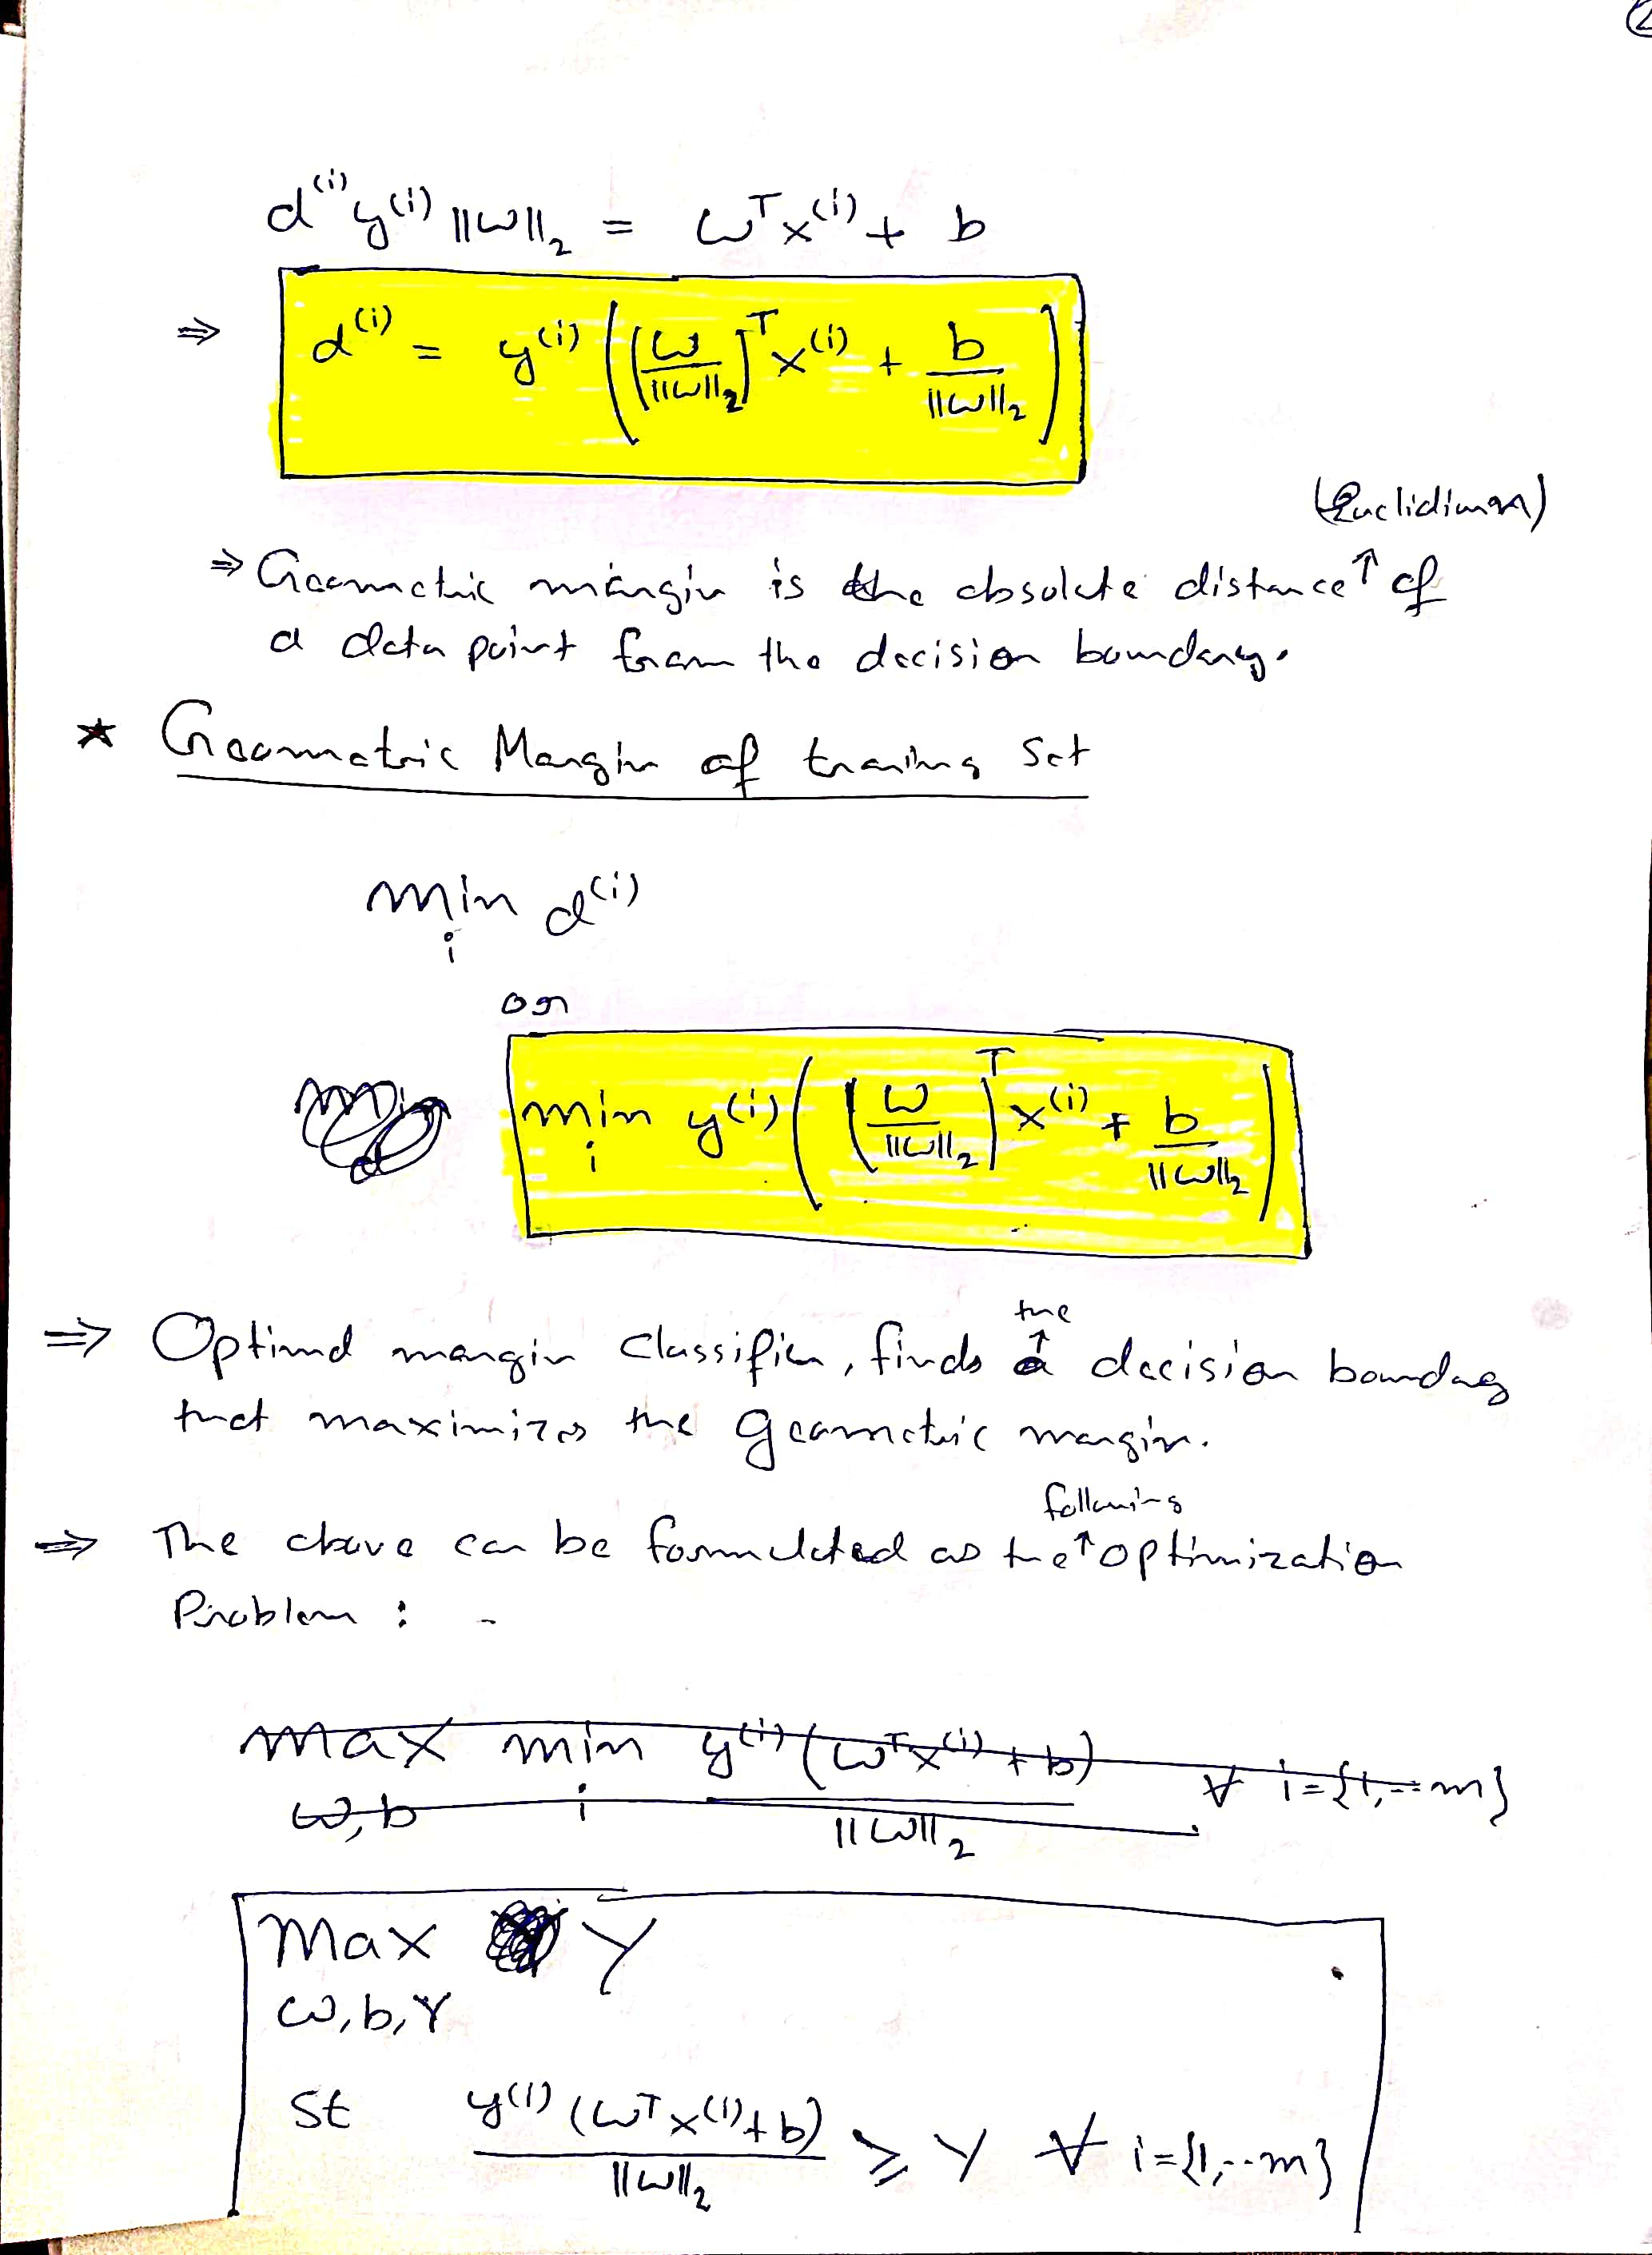 ②
d⁽ⁱ⁾ y⁽ⁱ⁾ ||ω||₂ = ωᵀx⁽ⁱ⁾ + b
⇒ d⁽ⁱ⁾ = y⁽ⁱ⁾ ( (ω/||ω||₂)ᵀ x⁽ⁱ⁾ + b/||ω||₂ )
(Euclidiman)
⇒ Geometric margin is the absolute distance ↑ of
a data point from the decision boundary.
* Geometric Margin of traning set
min d⁽ⁱ⁾
i
or
min y⁽ⁱ⁾ ( (ω/||ω||₂)ᵀ x⁽ⁱ⁾ + b/||ω||₂ )
i
the
⇒ Optimal margin classifier, finds ↑ a decision boundary
that maximizes the geometric margin.
following
⇒ The above can be formulated as the ↑ optimization
Problem : -
max min y⁽ⁱ⁾(ωᵀx⁽ⁱ⁾ + b) / ||ω||₂ ∀ i={1,--m}
ω,b i
Max γ
ω,b,γ
st y⁽ⁱ⁾(ωᵀx⁽ⁱ⁾+b) / ||ω||₂ ⩾ γ ∀ i={1,--m}